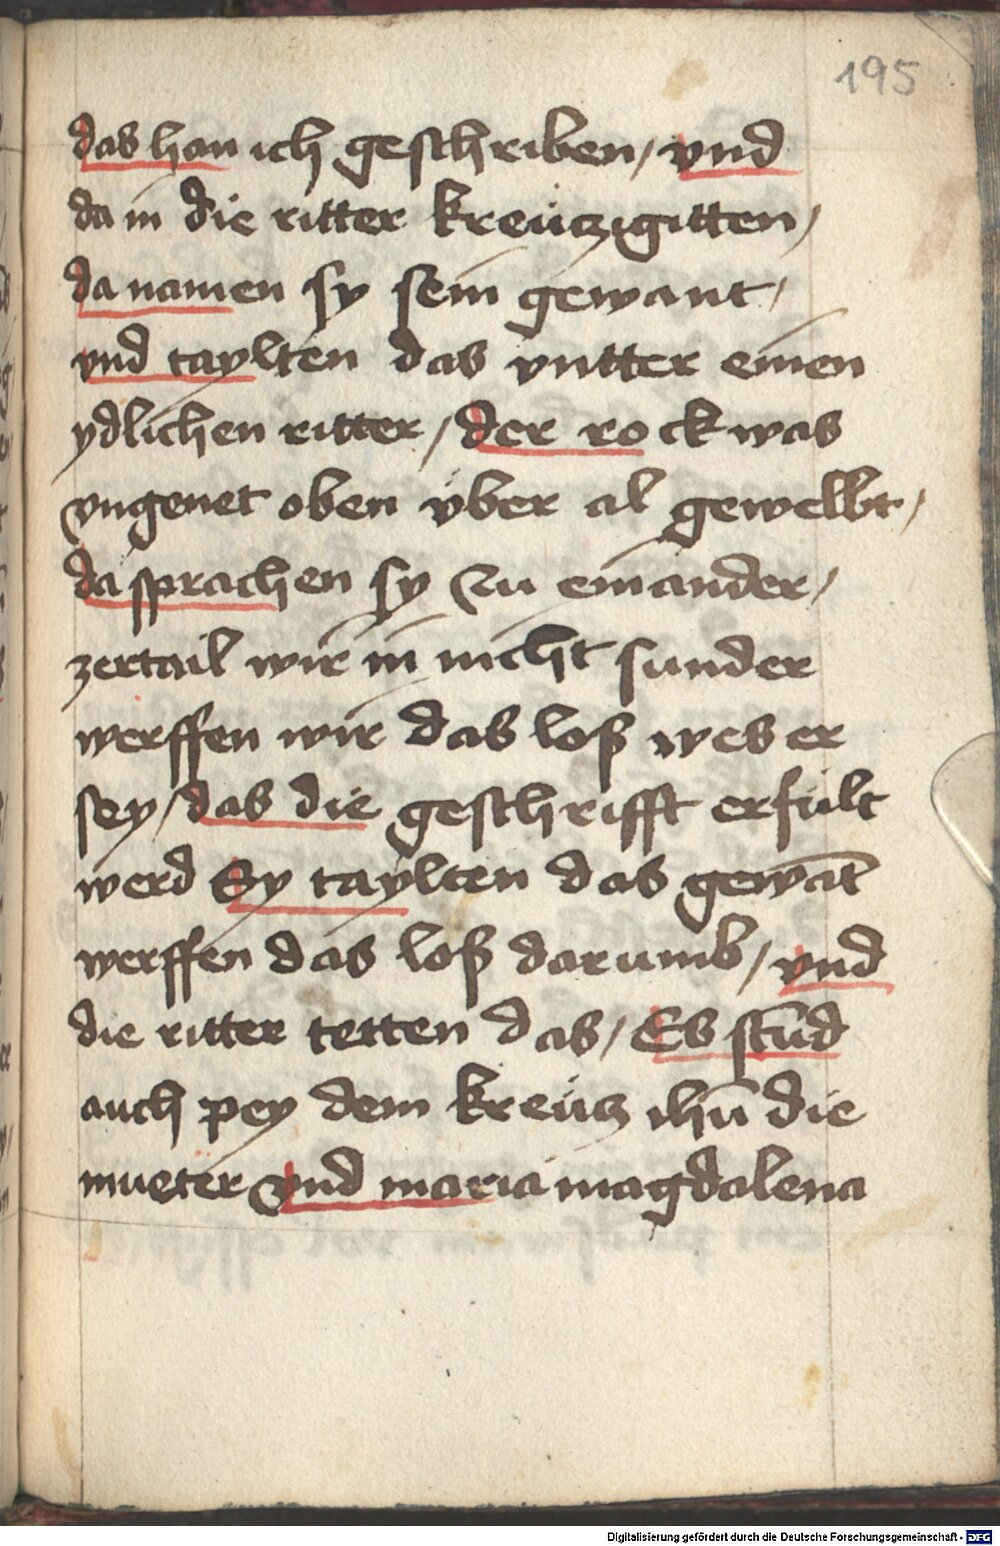 195
das han ich geschriben / vnd
da in die ritter kreüczigitten /
da namen sy sein gewant /
vnd taylten das vntter einen
ydlichen ritter / der rock was
vngenet oben vber al gewelbt /
da sprachen sy zu einander /
zertail wir in nicht sunder
werffen wir das loß wes er
sey / das die geschrifft erfült
werd Sy taylten das gewāt
werffen das loß darumb / vnd
die ritter tetten das / Es stūd
auch pey dem kreücz ihū die
mueter vnd maria magdalena
Digitalisierung gefördert durch die Deutsche Forschungsgemeinschaft - DFG